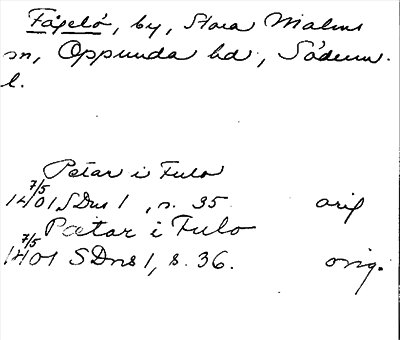 Fågelö, by, Stora Malms
sn, Oppunda hd, Söderm.
l.
Petar i Fulo
7/5
1401 SDns 1, s. 35. orig
Pætar i Fulo
7/5
1401 SDns 1, s. 36. orig.